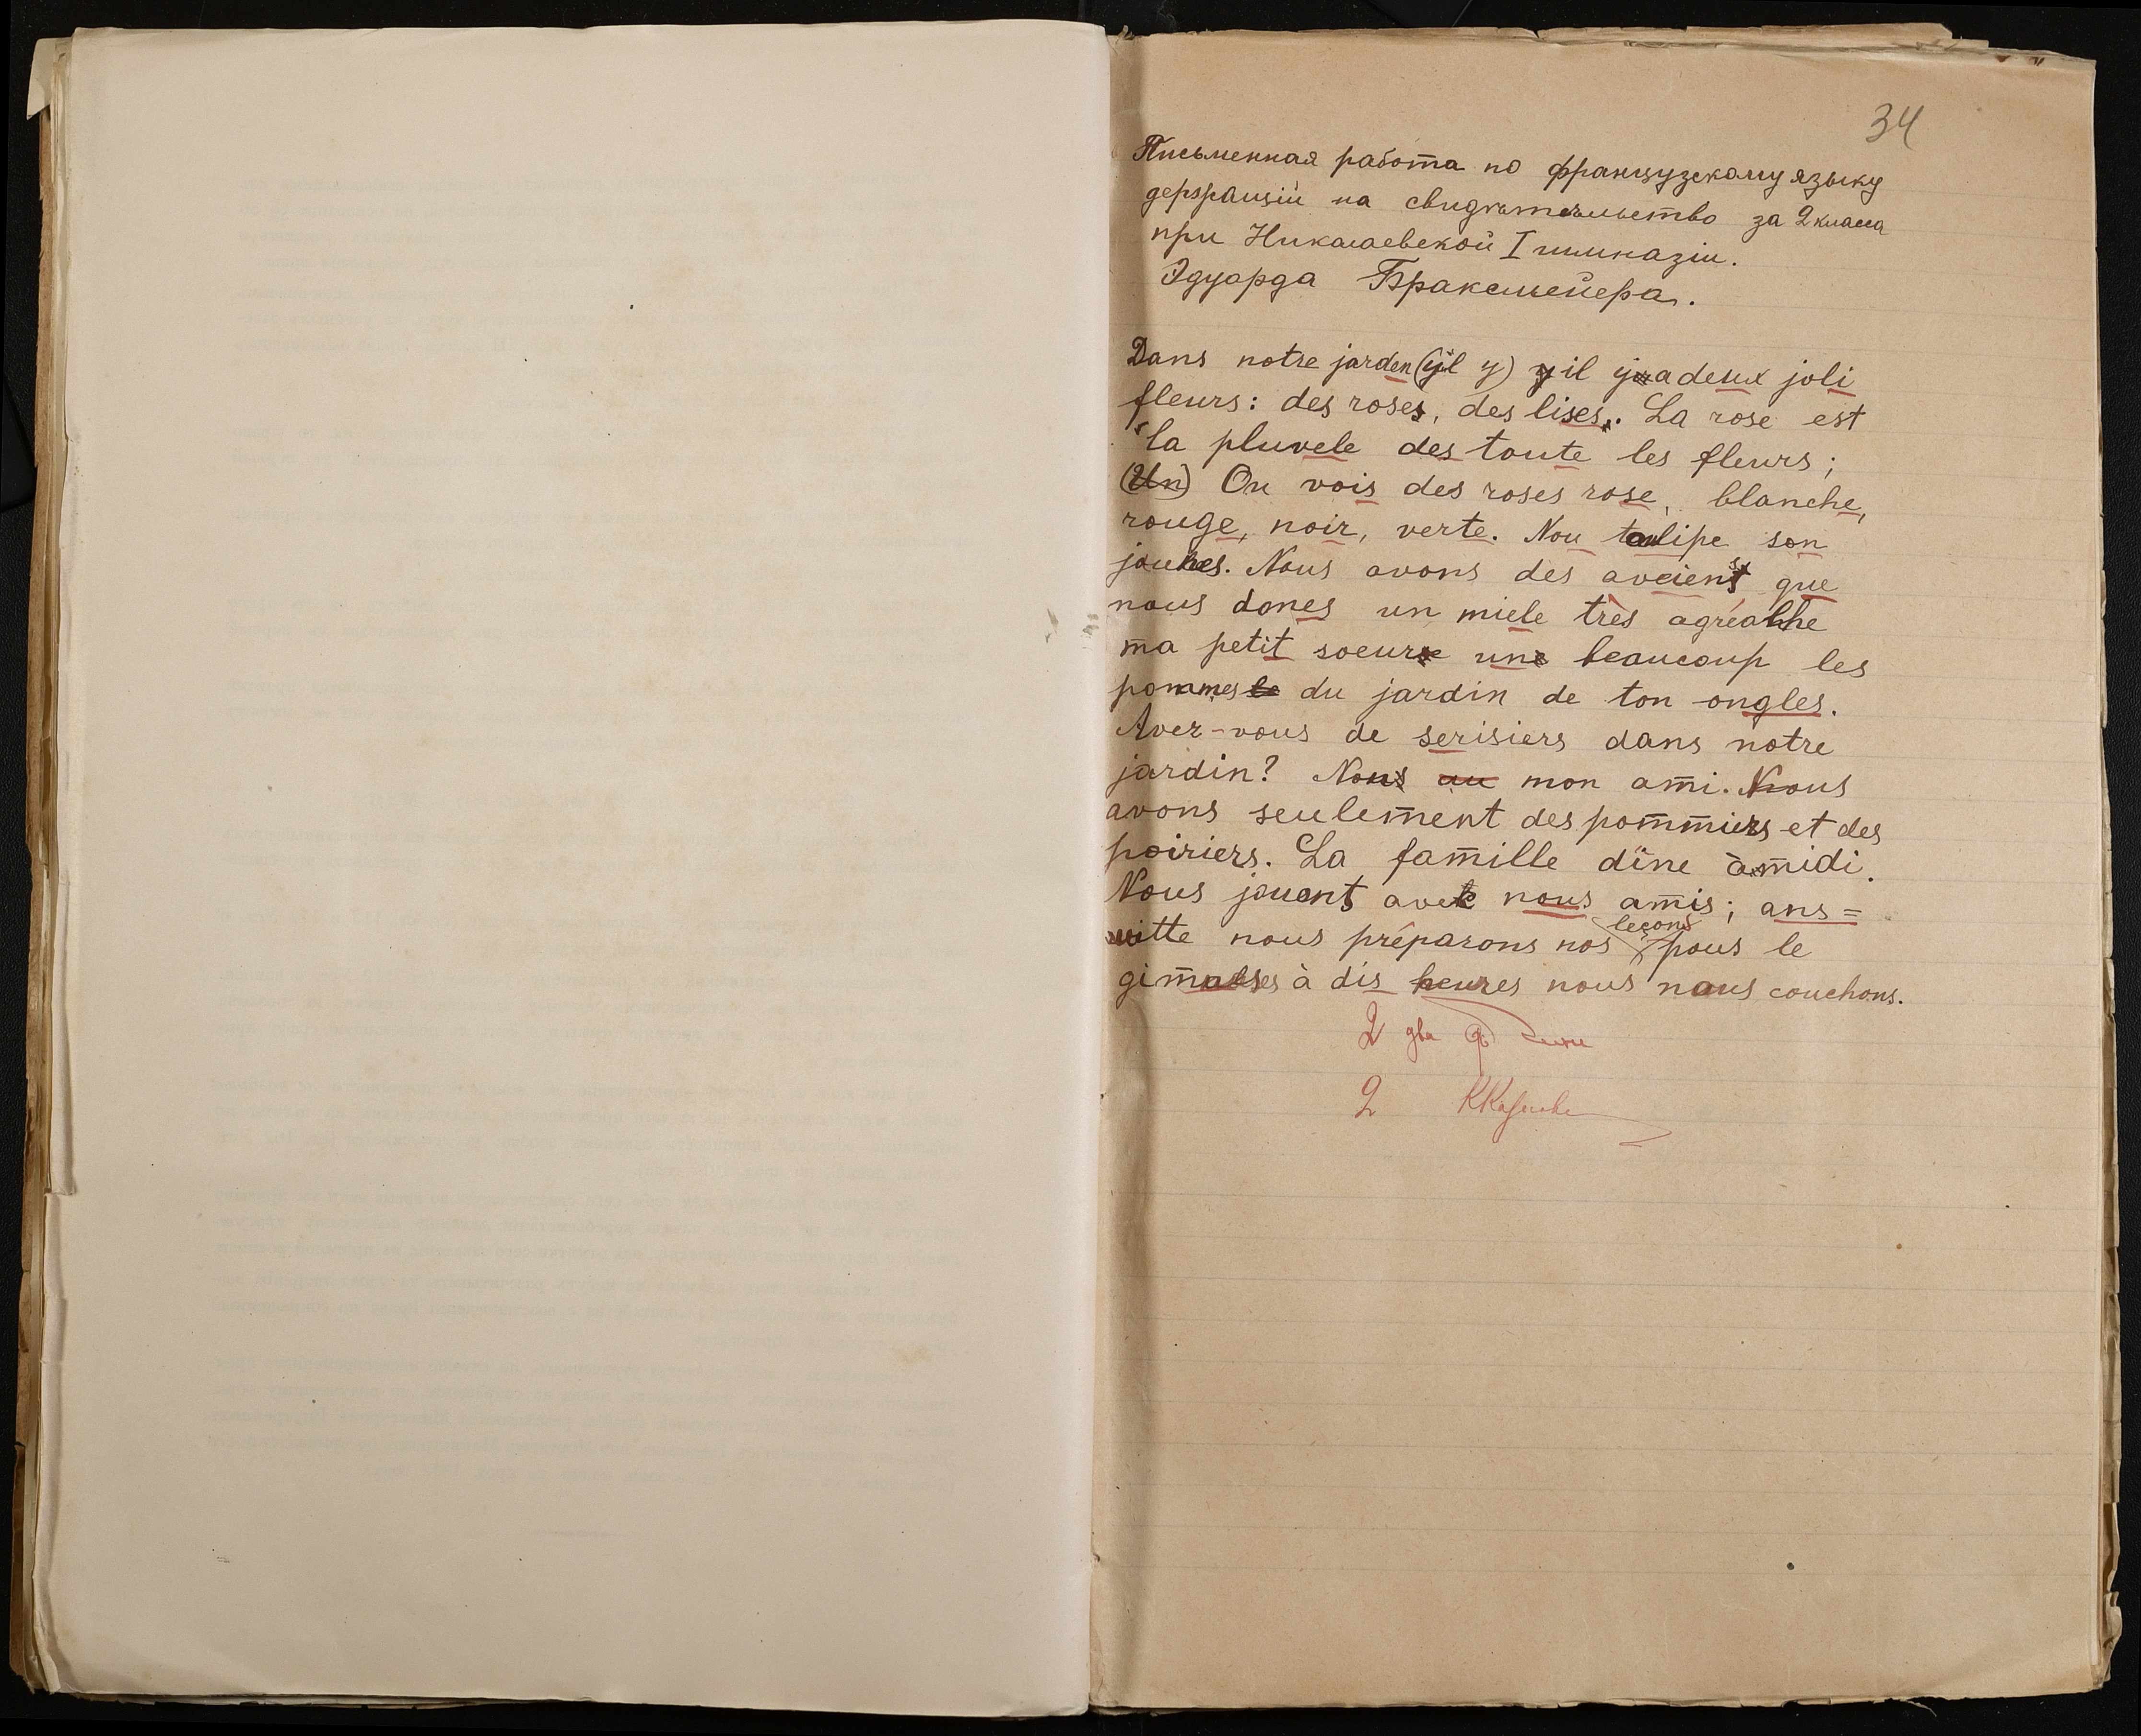 34
Письменная работа по французскому языку
держраизіи на свидѣтельство за 2 класса
при Николаевской I гимназіи.
Эдуарда Браксмейера.
Dans notre jarden (yil y) y il y a deux joli
fleurs: des roses, des lises. La rose est
la pluvele des toute les fleurs;
(Un) On vois des roses rose, blanche,
rouge, noir, verte. Nou tulipe son
jounes. Nous avons des aveient que
nous dones un miele très agréable
ma petit soeur une beaucoup les
pommes le du jardin de ton ongles.
Avez-vous de serisiers dans notre
jardin? Nous au mon ami. Nous
avons seulement des pommiers et des
poiriers. La famille dîne à midi.
Nous jouent avec nous amis; ans=
witte nous préparons nos leçons pous le
à dis heures nous nous couchons.
2 два
2